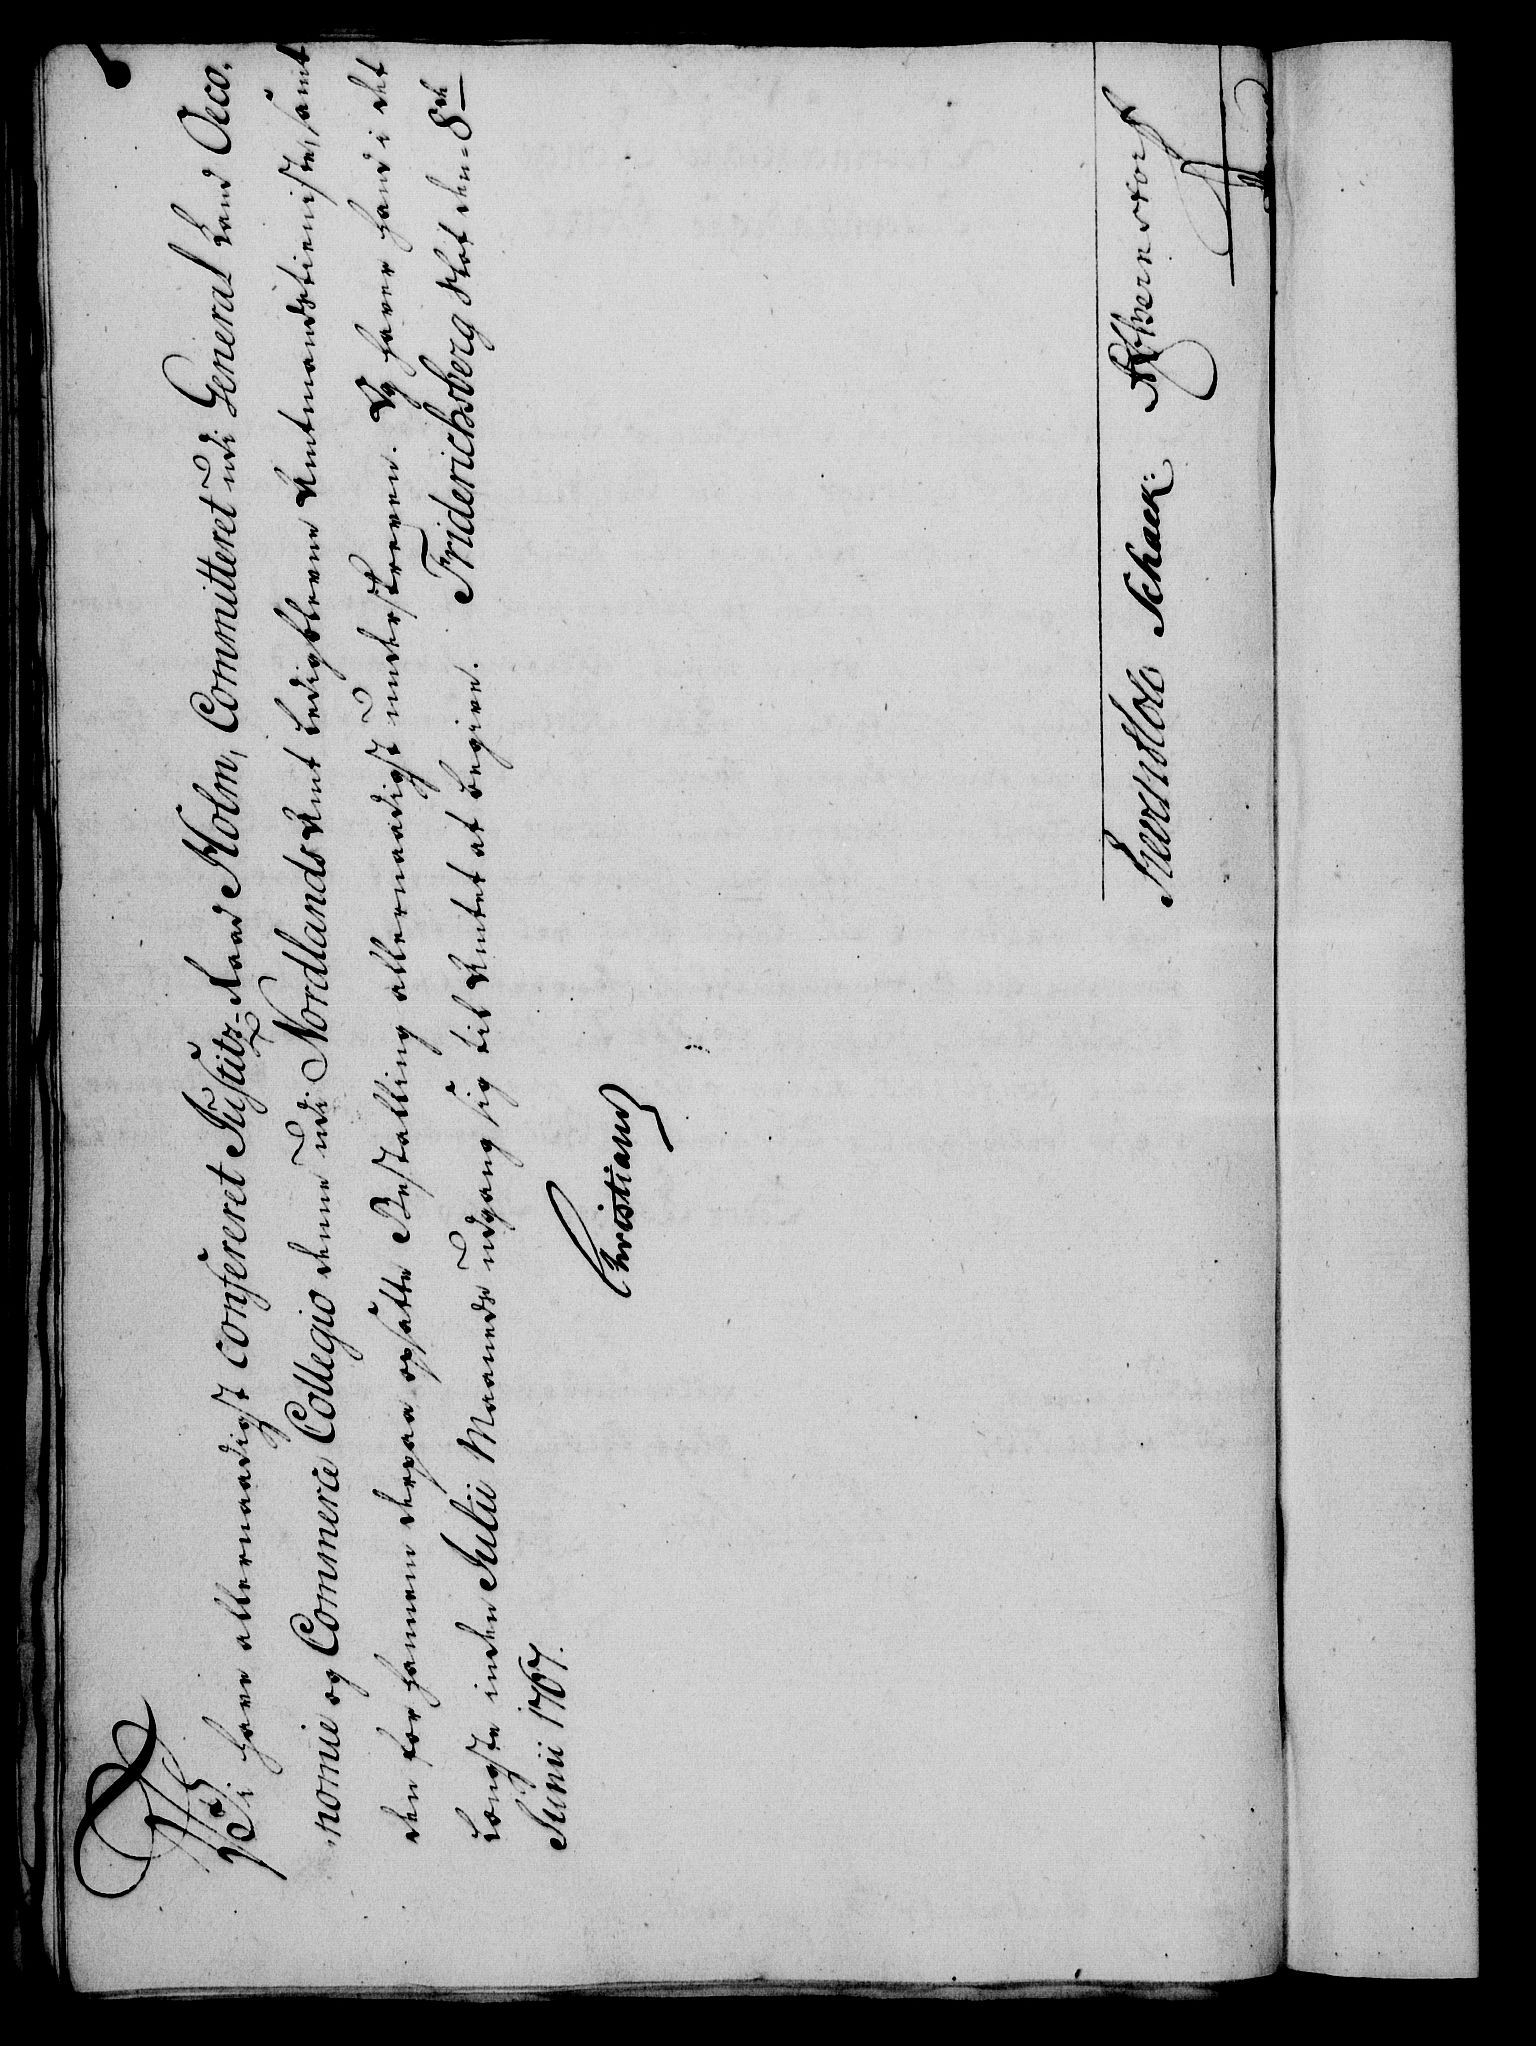 Vi have allernaadigst confereret Justitz-Raad Holm, Committeret udi General Land Oeco-
nomie og Commerce Collegio denne udi Nordlands Amt ledigblevne Amtmandstieniste, samt
den for hannem derpaa opsatte Bestalling allernaadigst underskreven. Og haver hand i det
længste inden Julii Maaneds Udgang sig til Amtet at begive. Friderichsberg Slot den 8de
Junii 1767.
Christian
Reventlow Schack. Bernstorf